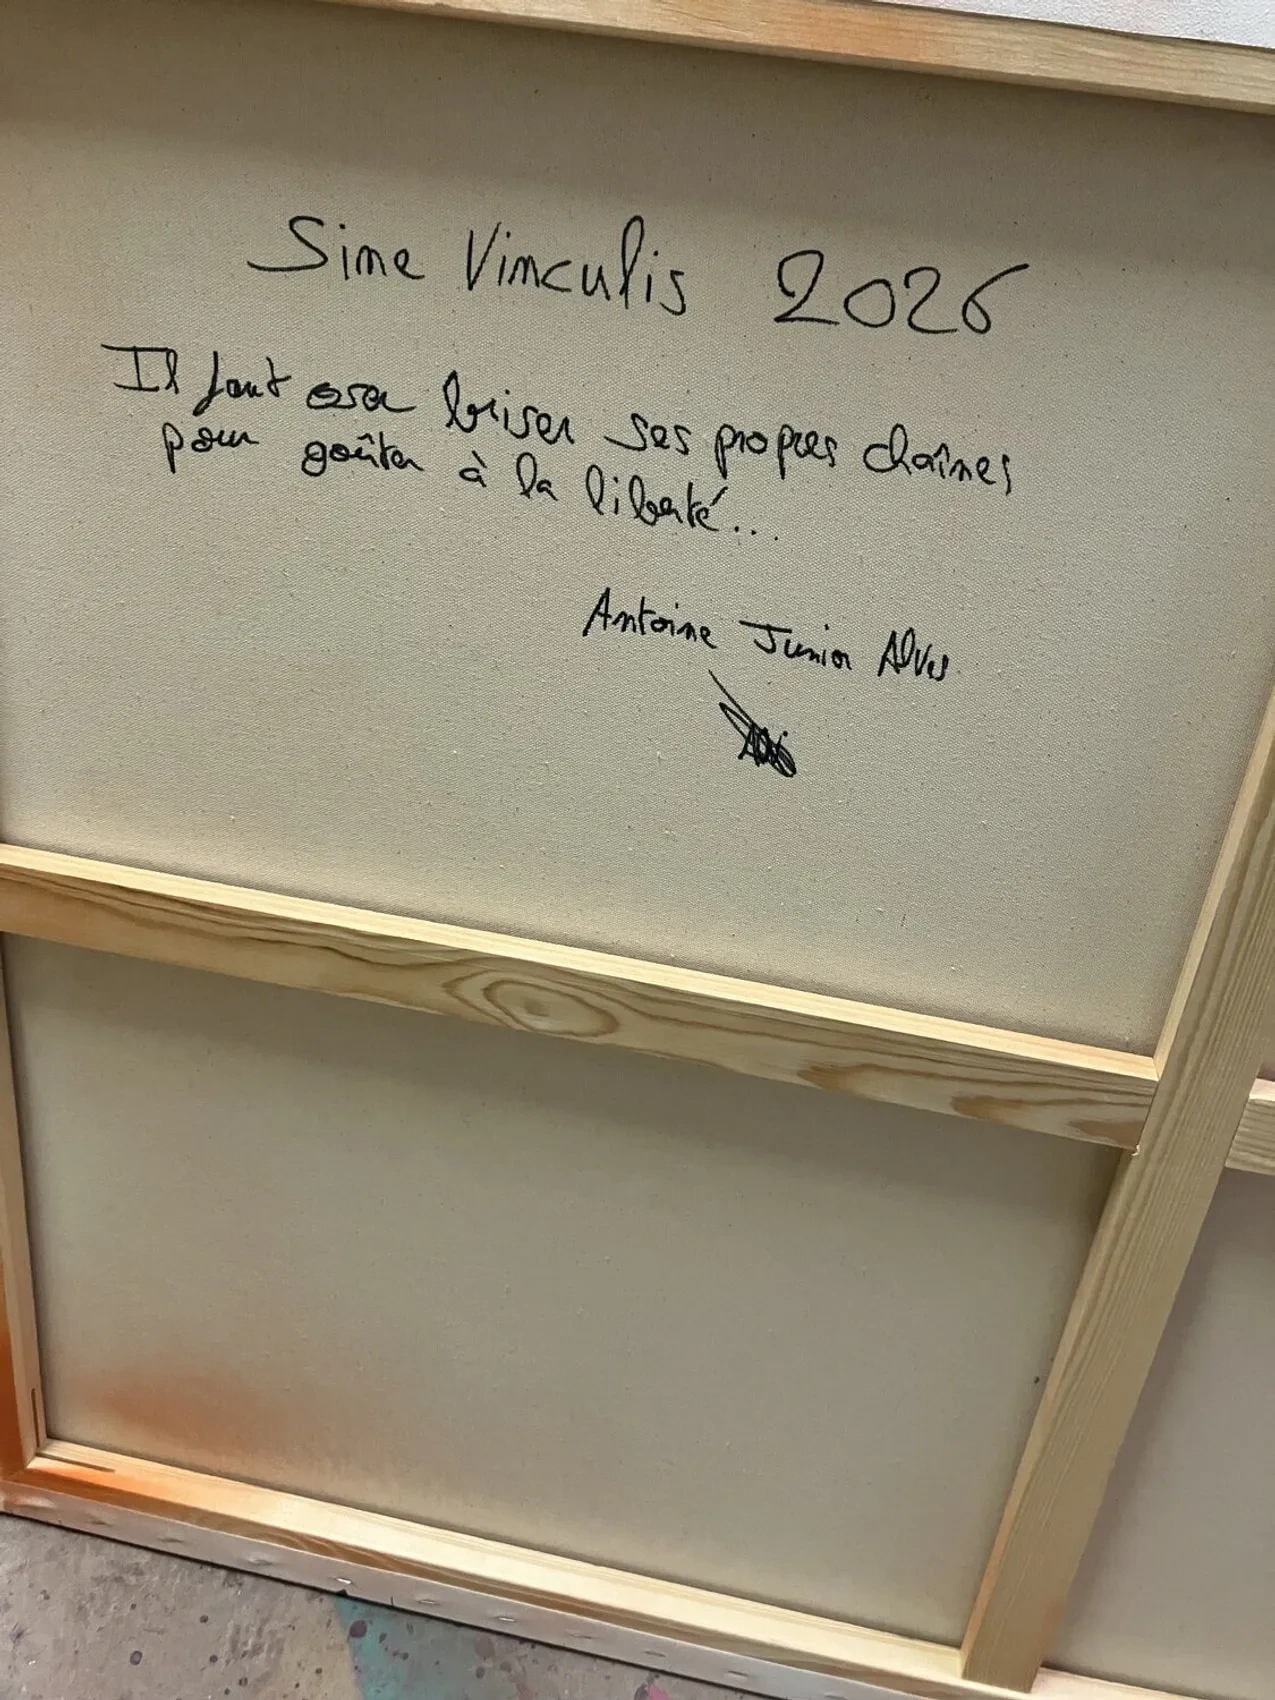 Sine Vinculis 2026
Il faut oser briser ses propres chaînes
pour goûter à la liberté...
Antoine Junior Alves